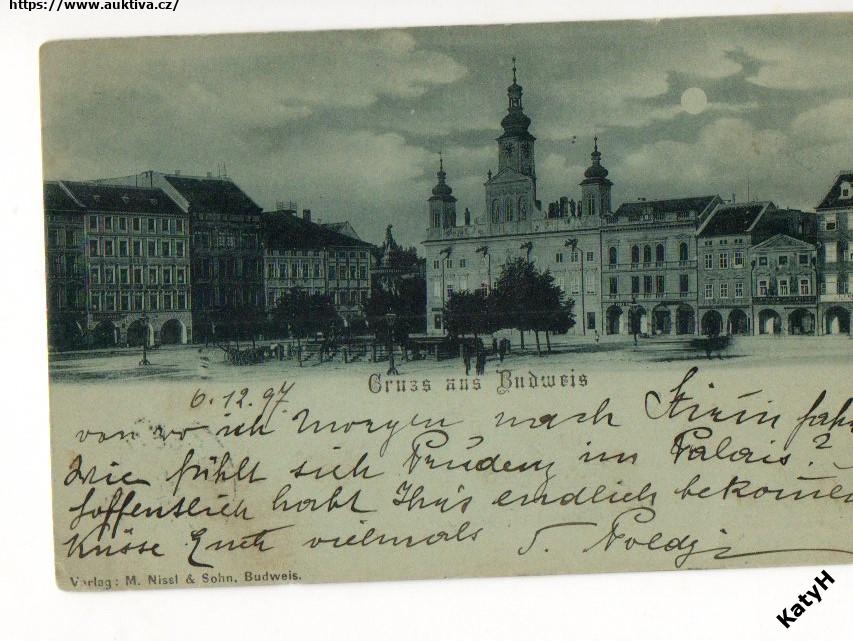 https://www.auktiva.cz/
Gruss aus Budweis
6.12.97
von wo ich Morgen nach Stirin fahr
Wie fühlt sich Prudenz im Palais?
hoffentlich habt Ihr's endlich bekomen
Küsse Euch vielmals Poldy
Verlag: M. Nissl & Sohn, Budweis.
KatyH